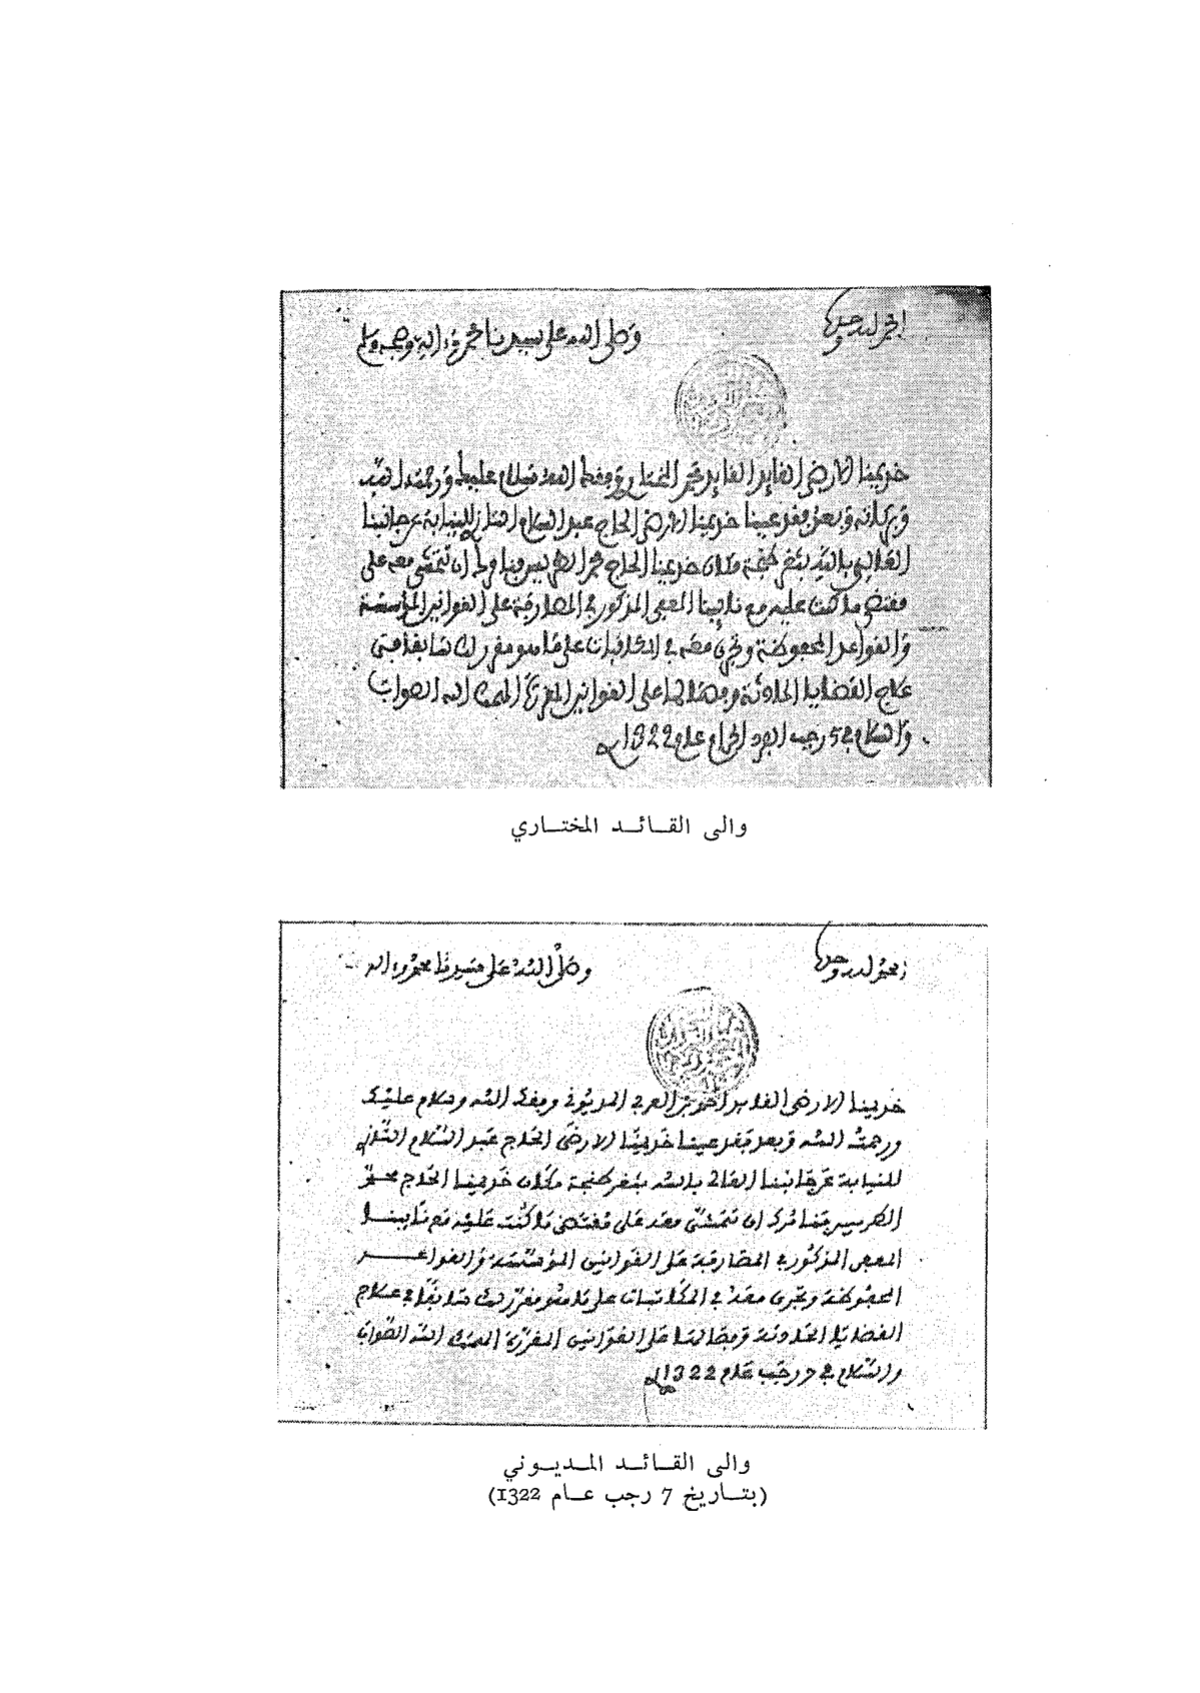 الحمد لله وحده
وصلى الله على سيدنا محمد وءاله وصحبه وسلم
خديمنا الارضى القايد محمد المختاري وفقك الله وسلام عليك ورحمة الله
وبركاته وبعد فقد عينا خديمنا الارضى الحاج عبد السلام التازي للنيابة عن جانبنا
العالي بالله بثغر طنجة مكان خديمنا الحاج محمد الطريس ان تتمشى معه على
مقتضى ما كنت عليه مع نايبنا المذكور في المصارفة على القوانين المؤسسة
والقواعد المحفوظة وتجري معه في المكاتبات على ما هو مقرر لك سابقا في
علاج القضايا الحادثة وفصالها على القوانين المقررة الهمك الله الصواب
والسلام في 5 رجب الفرد الحرام عام 1322
والى القــائــد المختــاري
الحمد لله وحده
وصلى الله على سيدنا محمد وءاله
خديمنا الارضى القايد العربي المديوني وفقك الله وسلام عليك
ورحمت الله وبعد فقد عينا خديمنا الارضى الحاج عبد السلام التازي
للنيابة عن جانبنا العالي بالله بثغر طنجة مكان خديمنا الحاج محمد
الطريس ان تتمشى معه على مقتضى ما كنت عليه مع نايبنا
المذكور في المصارفة على القوانين المؤسسة والقواعد
المحفوظة وتجري معه في المكاتبات على ما هو مقرر لك سابقا في علاج
القضايا الحادثة وفصالها على القوانين المقررة الهمك الله الصواب
والسلام في 7 رجب عام 1322
والى القــائــد المــديــوني
(بتــاريخ 7 رجب عــام 1322)